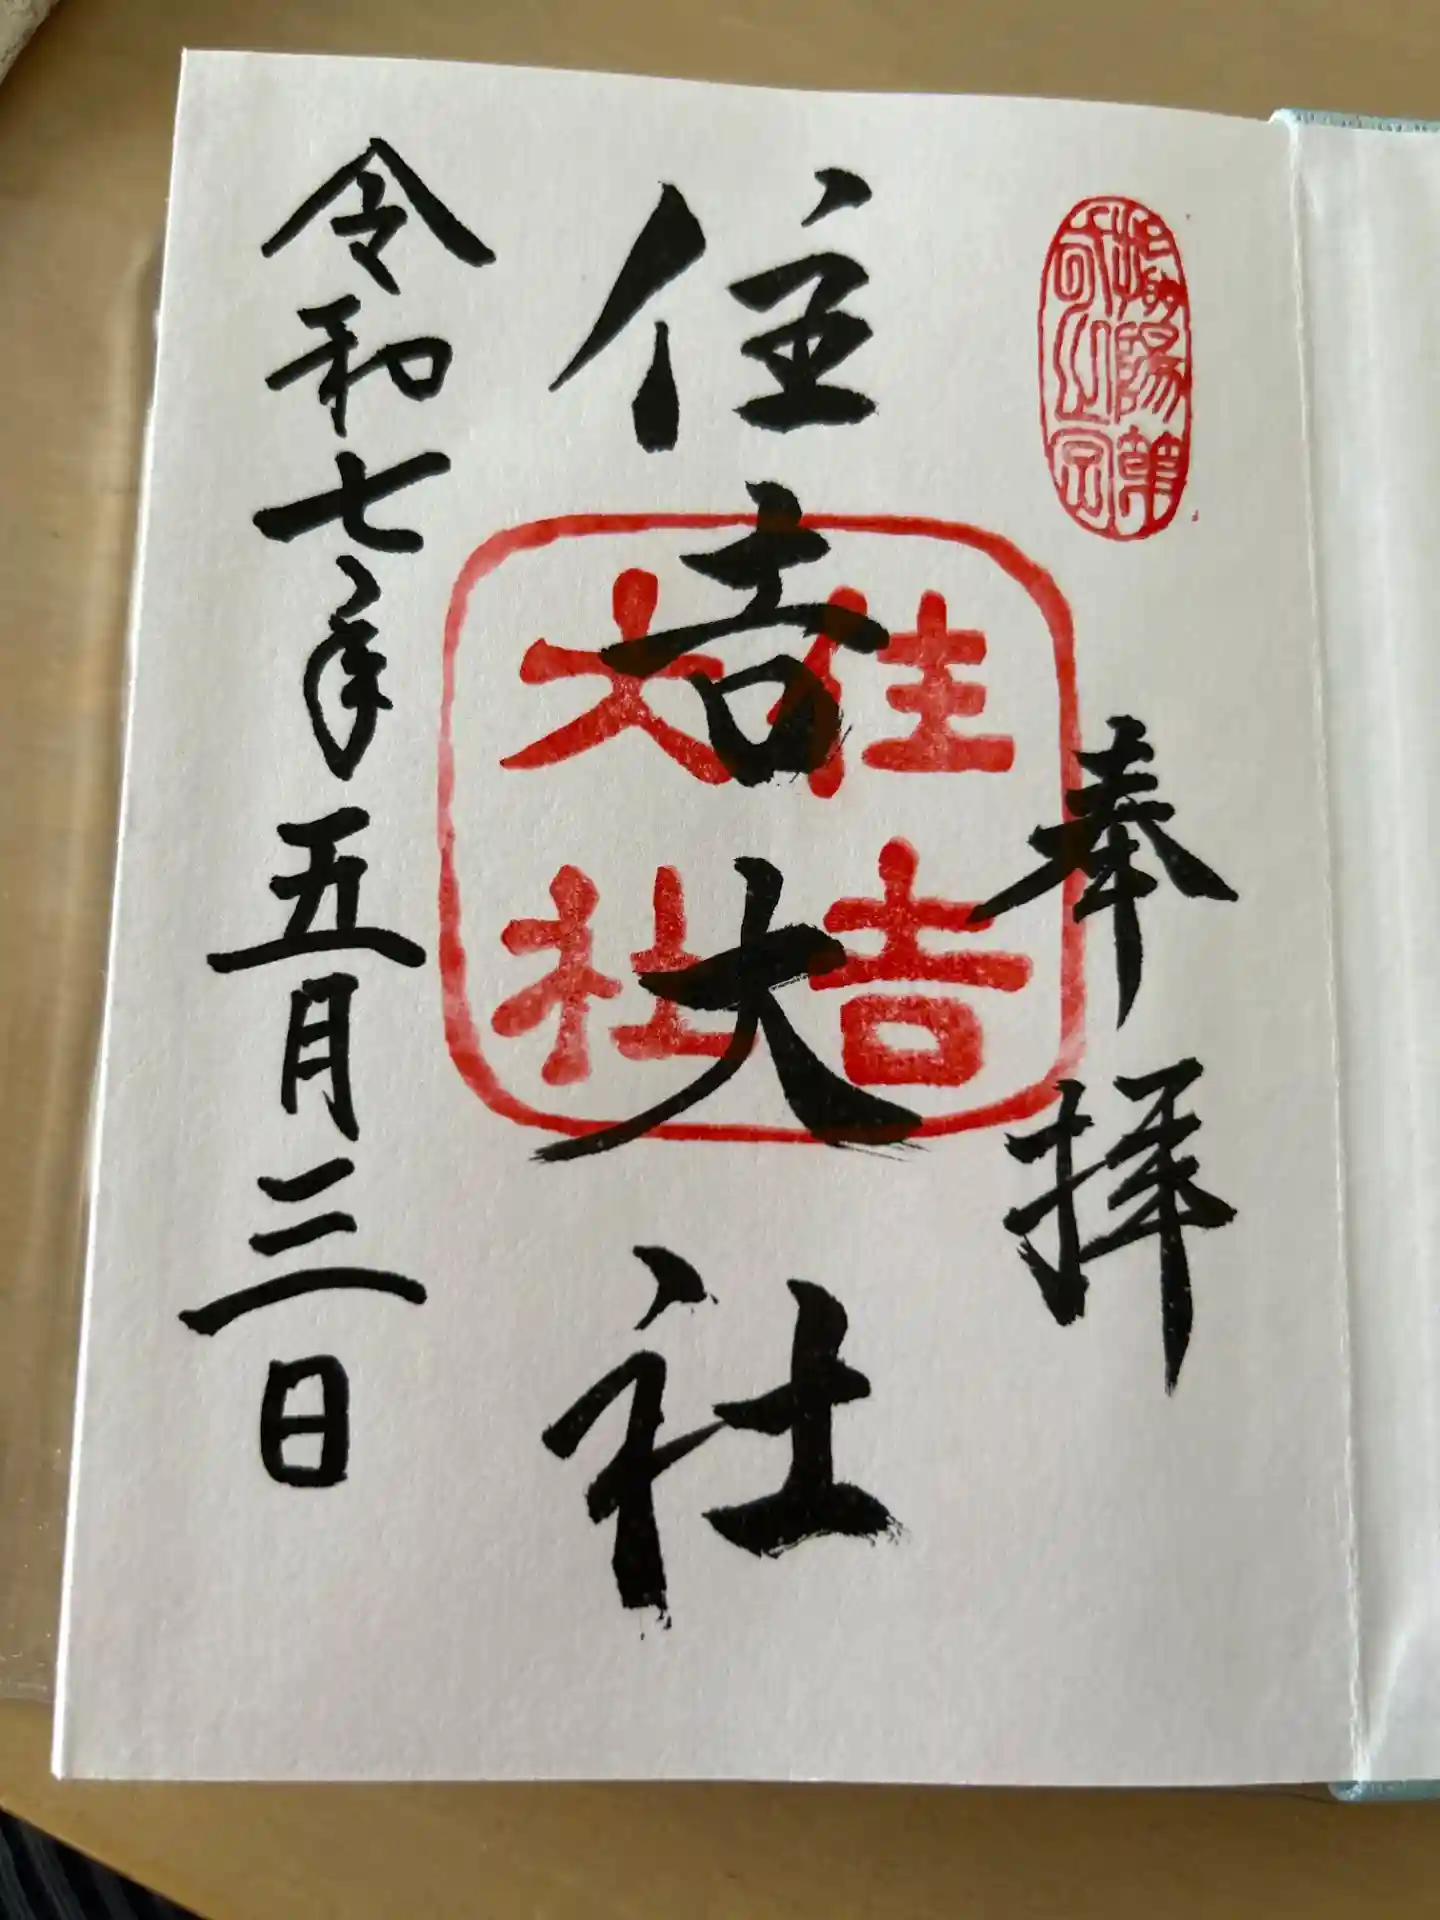 奉拝
住吉大社
住吉大社
令和七年五月三日